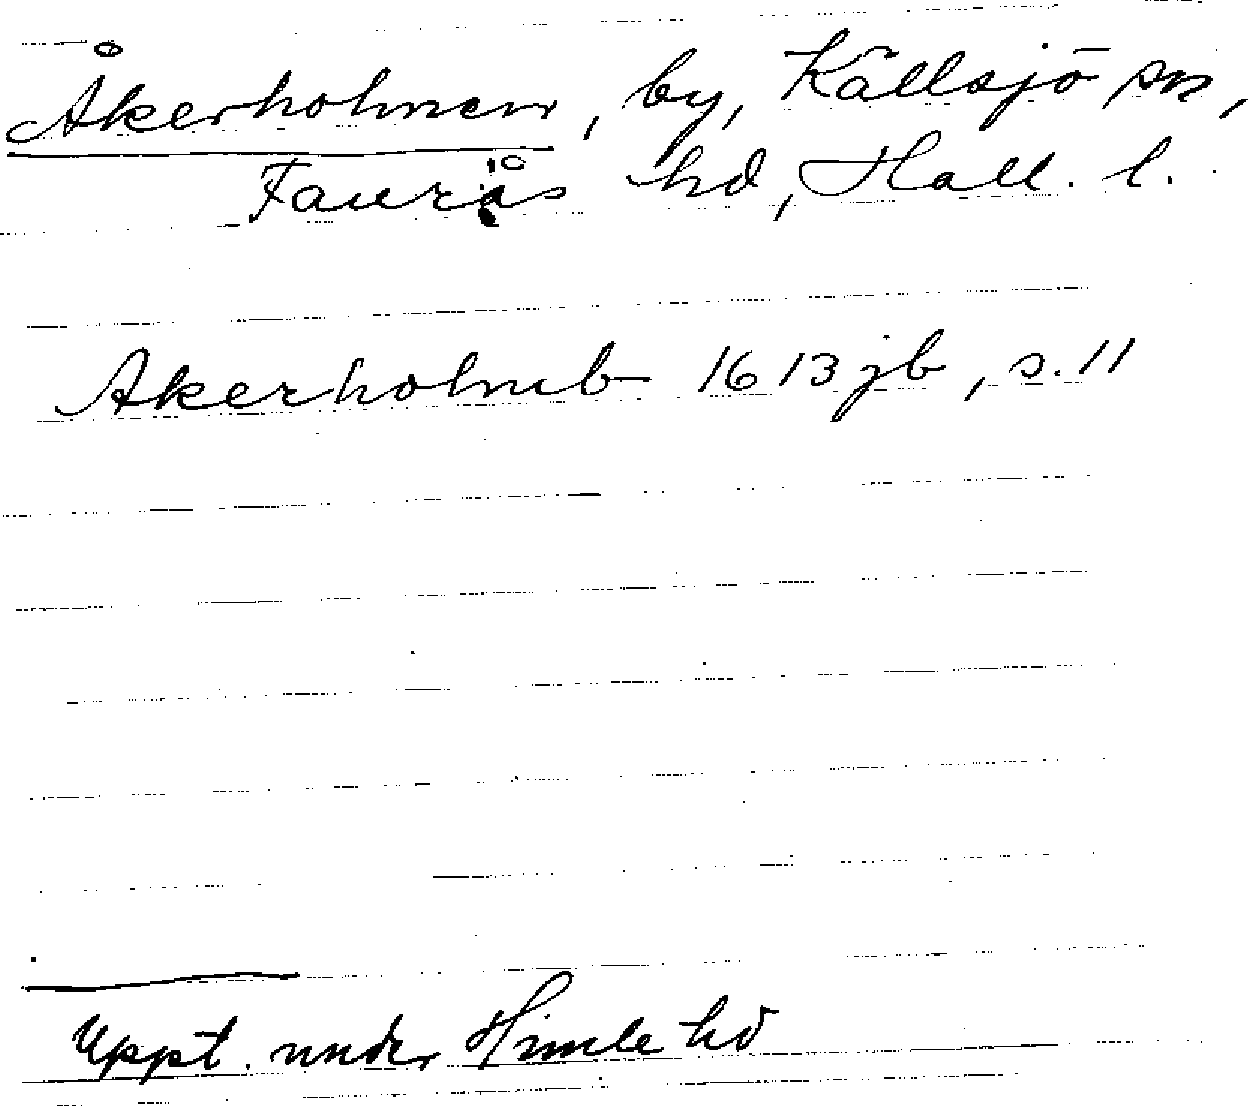 Åkerholmen, by, Källsjö sn,
Faurås hd, Hall. l.
Akerholmb 1613 jb, s. 11
Uppt. under Himle hd